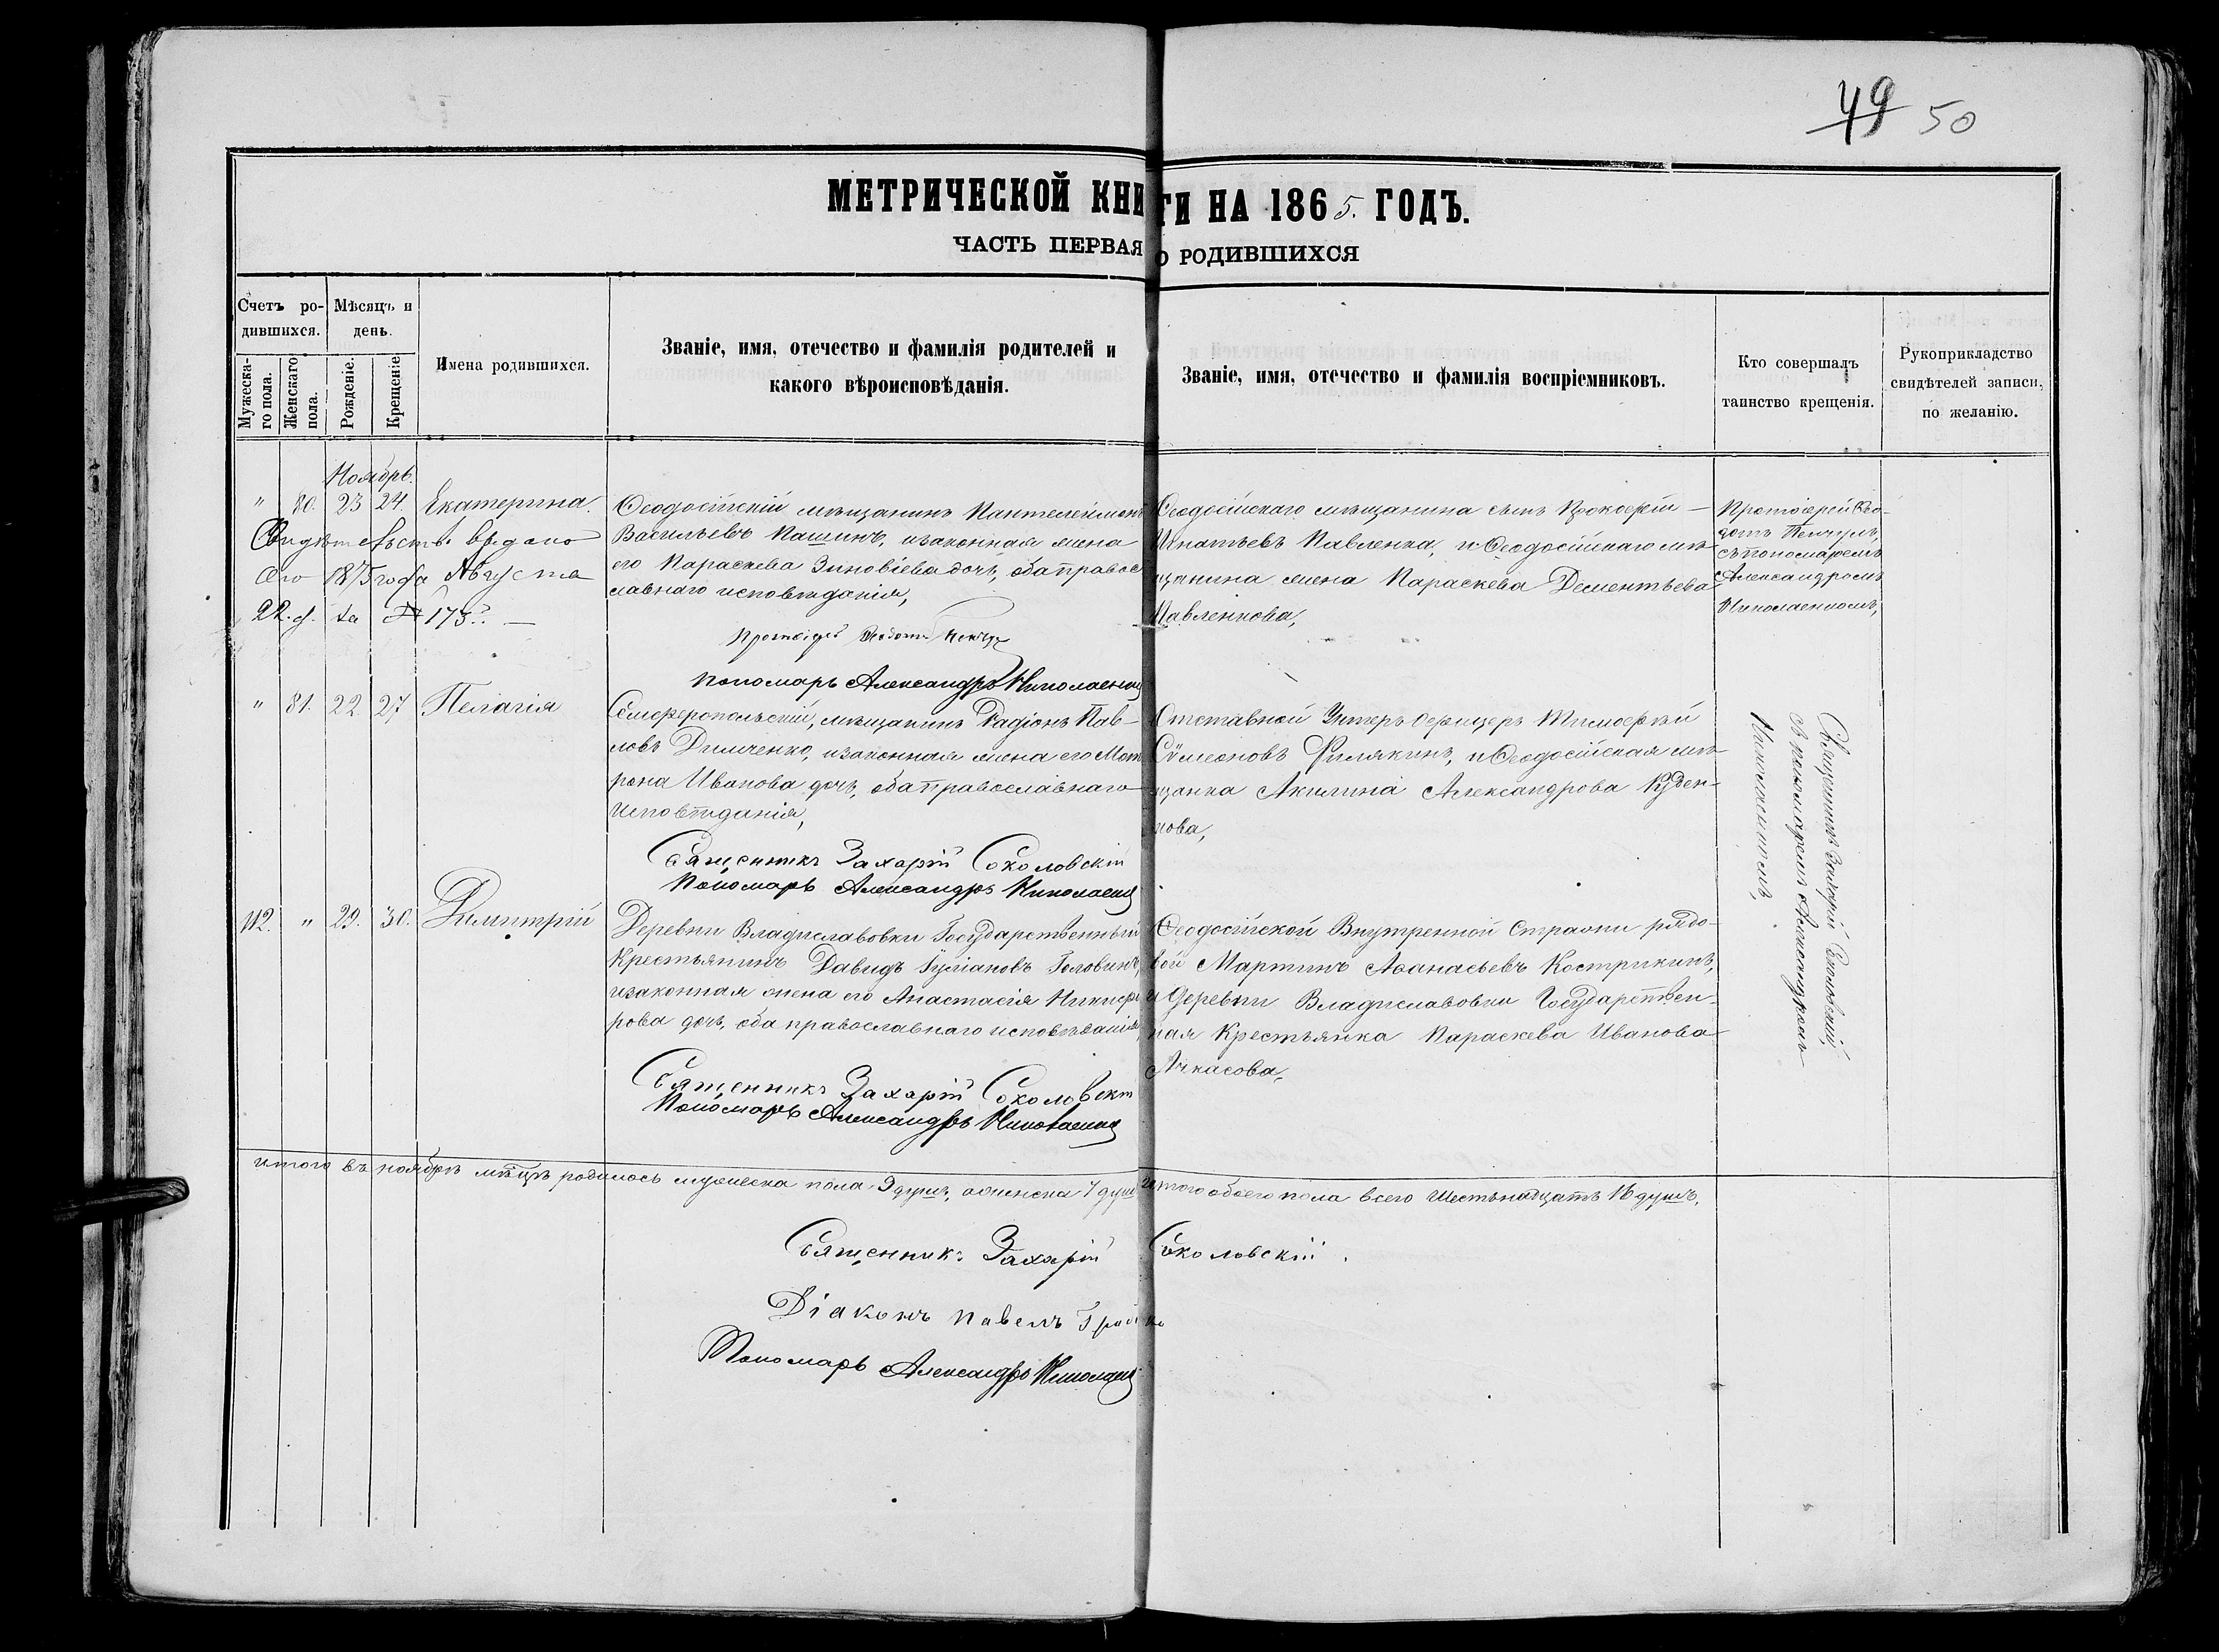 49 50
МЕТРИЧЕСКОЙ КНИГИ НА 1865. ГОДЪ.
ЧАСТЬ ПЕРВАЯ О РОДИВШИХСЯ
Счетъ ро-
дившихся.
Мужеска-
го пола.
Женскаго
пола.
Мѣсяцъ и
день.
Рожденіе.
Крещеніе
Имена родившихся.
Званіе, имя, отечество и фамилія родителей и
какого вѣроисповѣданія.
Званіе, имя, отечество и фамилія воспріемниковъ.
Кто совершалъ
таинство крещенія.
Рукоприкладство
свидѣтелей записи,
по желанію.
Ноябрь.
" 80. 23 24. Екатерина.
Свидѣтельств. выдано
1875 года Августа
22. за № 173.
Ѳеодосійскій мѣщанинъ Пантелеймонъ
Васильевъ Пашинъ, изаконная жена
его Параскева Зиновіева дочь, оба право
славнаго исповѣданія,
Протоіерей Ѳеодотъ
Пономарь Александръ
Ѳеодосійскаго мѣщанина сынъ Прокофій
Игнатьевъ Павленка, и Ѳеодосійскаго мѣ-
щанина жена Параскева Дементьева
Павленкова,
Протоіерей Ѳео-
дотъ
съ пономаремъ
Александромъ
" 81. 22 27 Пелагія
Симферопольскій, мѣщанинъ Радіонъ Пав-
ловъ Димченко, изаконная жена его Мат
рона Иванова дочь, оба православнаго
исповѣданія,
Священникъ Захарій Соколовскій
Пономарь Александръ
Отставной Унтеръ Офицеръ Тимофей
Сѵмеоновъ Филякинъ, и Ѳеодосійская мѣ-
щанка Акилина Александрова Куден-
кова,
Священникъ Захарій Соколовскій,
съ пономаремъ Александромъ
112. " 29. 30. Димитрій
Деревни Владиславовки Государственный
Крестьянинъ Давидъ Іуліановъ Головинъ,
изаконная жена его Анастасія Никифо
рова дочь, оба православнаго исповѣданія,
Священникъ Захарій Соколовскій
Пономарь Александръ
Ѳеодосійской Внутренной Стражи рядо-
вой Мартинъ Аѳанасьевъ Кострикинъ,
и Деревни Владиславовки Государствен-
ная Крестьянка Параскева Иванова
Ачкасова,
итого въ ноябрѣ мѣсцѣ родилось мужеска пола 9 душъ, аженска 7 душъ итого обоего пола всего Шестьнадцать 16 душъ.
Священникъ Захарій Соколовскій.
Діаконъ Павелъ
Пономарь Александръ